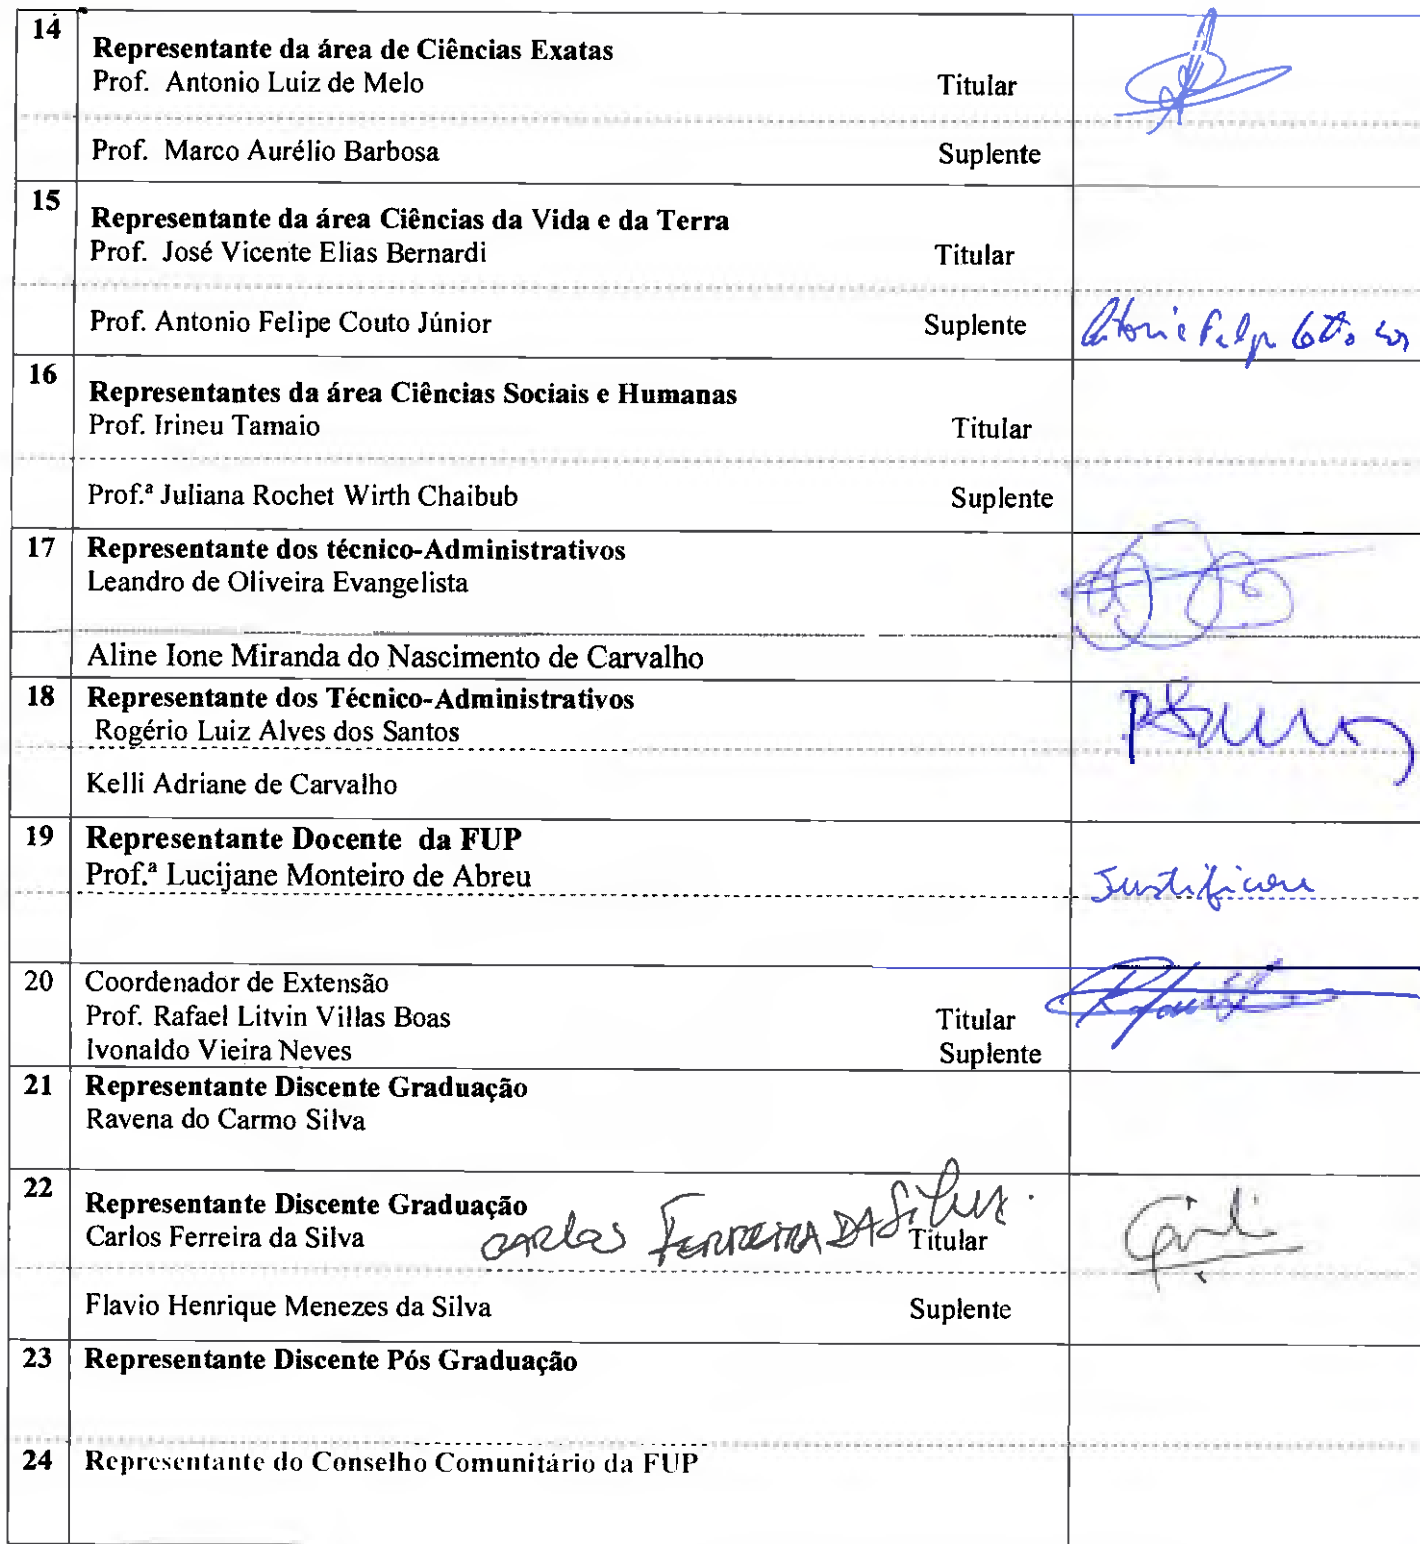 14
Representante da área de Ciências Exatas
Prof. Antonio Luiz de Melo Titular
Prof. Marco Aurélio Barbosa Suplente
15
Representante da área Ciências da Vida e da Terra
Prof. José Vicente Elias Bernardi Titular
Prof. Antonio Felipe Couto Júnior Suplente
16
Representantes da área Ciências Sociais e Humanas
Prof. Irineu Tamaio Titular
Prof.ª Juliana Rochet Wirth Chaibub Suplente
17 Representante dos técnico-Administrativos
Leandro de Oliveira Evangelista
Aline Ione Miranda do Nascimento de Carvalho
18 Representante dos Técnico-Administrativos
Rogério Luiz Alves dos Santos
Kelli Adriane de Carvalho
19 Representante Docente da FUP
Prof.ª Lucijane Monteiro de Abreu
20 Coordenador de Extensão
Prof. Rafael Litvin Villas Boas Titular
Ivonaldo Vieira Neves Suplente
21 Representante Discente Graduação
Ravena do Carmo Silva
22
Representante Discente Graduação
Carlos Ferreira da Silva CARLOS FERREIRA DA SILVA Titular
Flavio Henrique Menezes da Silva Suplente
23 Representante Discente Pós Graduação
24 Representante do Conselho Comunitário da FUP